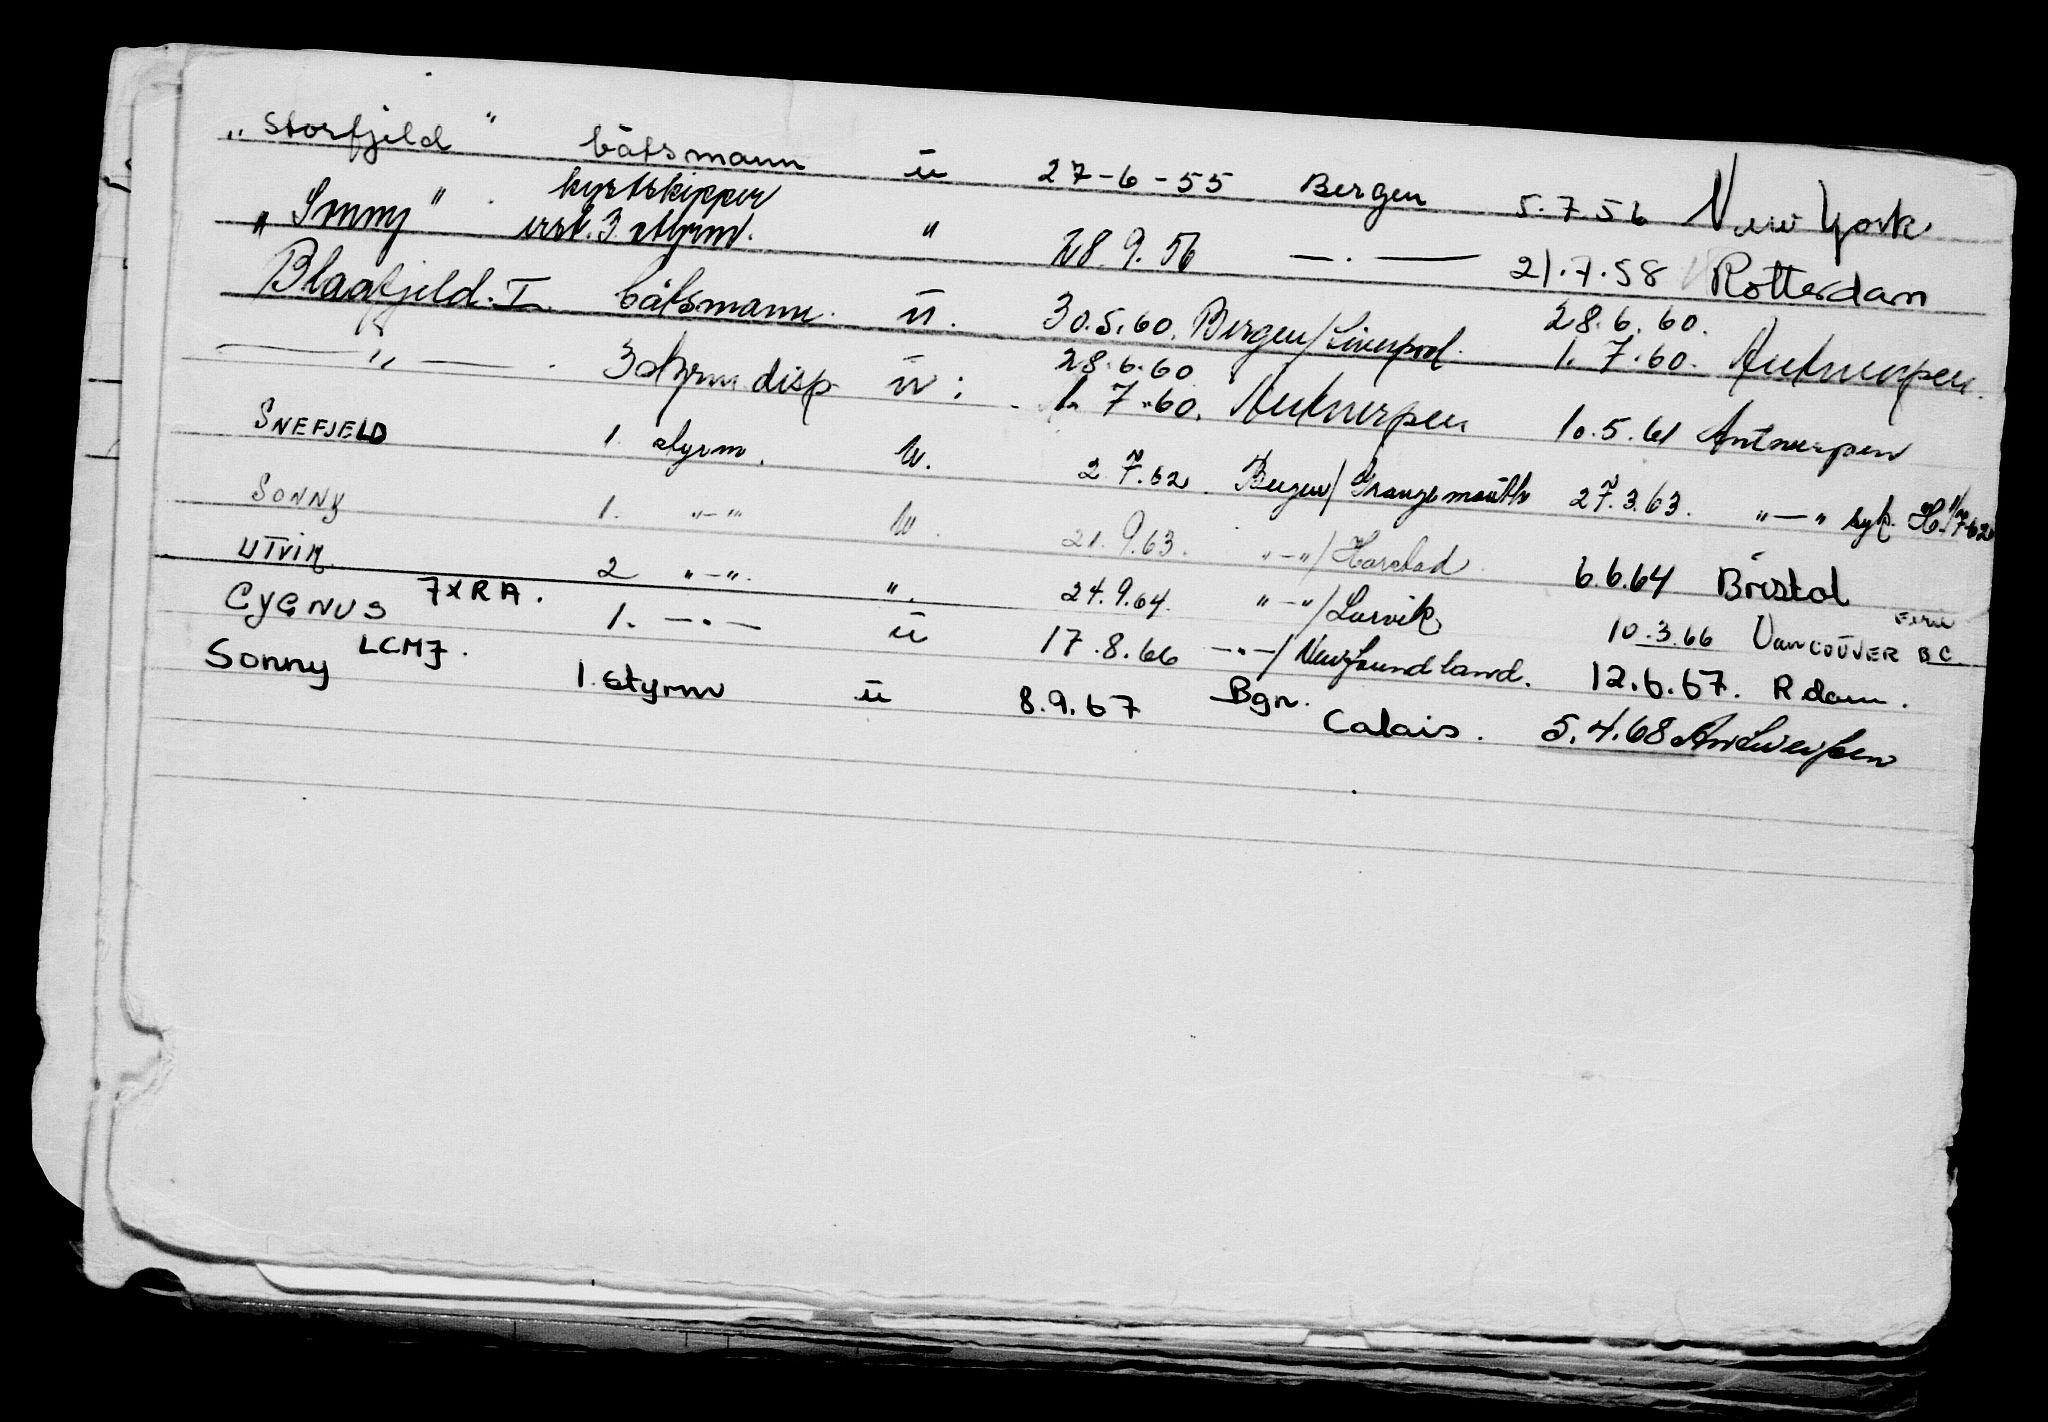 „ Storfjeld " båtsmann u 27-6-55 Bergen 5.7.56 New York
kystskipper
„ Sonny " erst. 3 styrm. " 28.9.56 — . — 21.7.58 Rotterdam
Blaafjeld. I. båtsmann. u. 30.5.60. Bergen/Liverpool. 28.6.60.
1. 7.60. Antwerpen.
— " — . 3 styrm disp u : 28.6.60
1. 7.60. Antwerpen 10.5.61 Antwerpen
SNEFJELD 1. styrm. u. 2.7.62. Bergen/Grangemouth 27.3.63. "—" syk.
SONNY 1. "—" u. 21.9.63. "-"/Harstad 6.6.64 Bristol
UTVIK. 2 "—". ". 24.9.64. "-"/Larvik 10.3.66 VANCOUVER BC ferie
CYGNUS 7XRA. 1. —.— u 17.8.66 —.—/Newfoundland. 12.6.67. Rdam.
Sonny LCMJ. 1. styrm u 8.9.67 Bgn. Calais. 5.4.68 Antwerpen